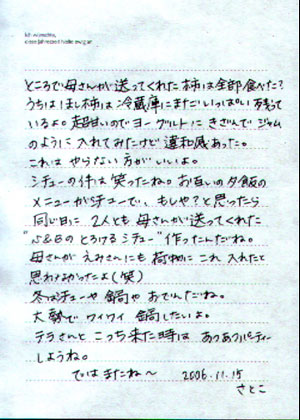 ところで母さんが送ってくれた柿は全部食べた?
うちはほし柿は冷蔵庫にまだいっぱい残って
いるよ。超甘いのでヨーグルトにきざんでジャム
のように入れてみたけど違和感あった。
これはやらない方がいいよ。
シチューの件は笑ったね。お互いの夕飯の
メニューがシチューで、もしや?と思ったら
同じ日に2人とも母さんが送ってくれた
"S&Bのとろけるシチュー"作ったんだね。
母さんがえみさんにも荷物にこれ入れたと
思わなかったよ(笑)
冬はシチューや鍋やおでんだね。
大勢でワイワイ鍋したいよ。
テラさんとこっち来た時はあつあつパーティー
しようね。
ではまたね〜 2006.11.15
さとこ